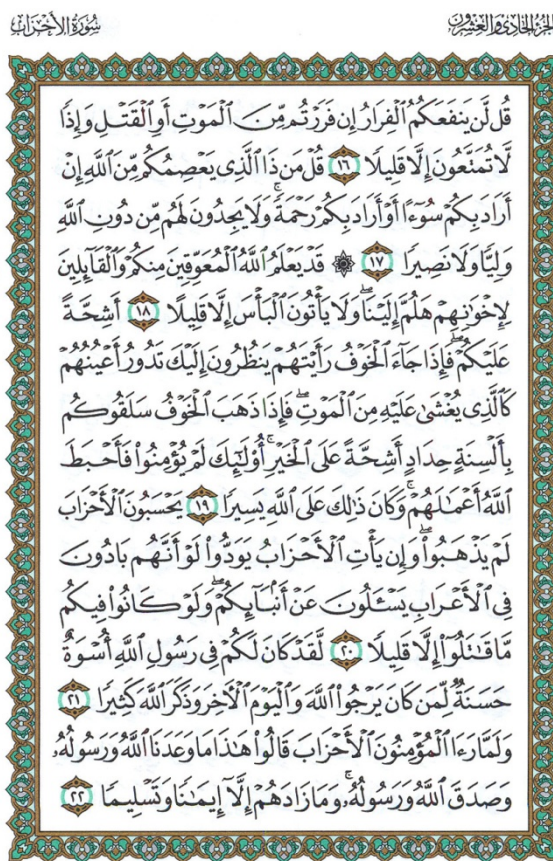 الجزء الحادي والعشرون
سورة الأحزاب
قُل لَّن يَنفَعَكُمُ ٱلْفِرَارُ إِن فَرَرْتُم مِّنَ ٱلْمَوْتِ أَوِ ٱلْقَتْلِ وَإِذًا
لَّا تُمَتَّعُونَ إِلَّا قَلِيلًا ١٦ قُلْ مَن ذَا ٱلَّذِى يَعْصِمُكُم مِّنَ ٱللَّهِ إِنْ
أَرَادَ بِكُمْ سُوٓءًا أَوْ أَرَادَ بِكُمْ رَحْمَةً ۚ وَلَا يَجِدُونَ لَهُم مِّن دُونِ ٱللَّهِ
وَلِيًّا وَلَا نَصِيرًا ١٧ ۞ قَدْ يَعْلَمُ ٱللَّهُ ٱلْمُعَوِّقِينَ مِنكُمْ وَٱلْقَآئِلِينَ
لِإِخْوَٰنِهِمْ هَلُمَّ إِلَيْنَا ۖ وَلَا يَأْتُونَ ٱلْبَأْسَ إِلَّا قَلِيلًا ١٨ أَشِحَّةً
عَلَيْكُمْ ۖ فَإِذَا جَآءَ ٱلْخَوْفُ رَأَيْتَهُمْ يَنظُرُونَ إِلَيْكَ تَدُورُ أَعْيُنُهُمْ
كَٱلَّذِى يُغْشَىٰ عَلَيْهِ مِنَ ٱلْمَوْتِ ۖ فَإِذَا ذَهَبَ ٱلْخَوْفُ سَلَقُوكُم
بِأَلْسِنَةٍ حِدَادٍ أَشِحَّةً عَلَى ٱلْخَيْرِ ۚ أُو۟لَٰٓئِكَ لَمْ يُؤْمِنُوا۟ فَأَحْبَطَ
ٱللَّهُ أَعْمَٰلَهُمْ ۚ وَكَانَ ذَٰلِكَ عَلَى ٱللَّهِ يَسِيرًا ١٩ يَحْسَبُونَ ٱلْأَحْزَابَ
لَمْ يَذْهَبُوا۟ ۖ وَإِن يَأْتِ ٱلْأَحْزَابُ يَوَدُّوا۟ لَوْ أَنَّهُم بَادُونَ
فِى ٱلْأَعْرَابِ يَسْـَٔلُونَ عَنْ أَنۢبَآئِكُمْ ۖ وَلَوْ كَانُوا۟ فِيكُم
مَّا قَٰتَلُوٓا۟ إِلَّا قَلِيلًا ٢٠ لَّقَدْ كَانَ لَكُمْ فِى رَسُولِ ٱللَّهِ أُسْوَةٌ
حَسَنَةٌ لِّمَن كَانَ يَرْجُوا۟ ٱللَّهَ وَٱلْيَوْمَ ٱلْأَخِرَ وَذَكَرَ ٱللَّهَ كَثِيرًا ٢١
وَلَمَّا رَءَا ٱلْمُؤْمِنُونَ ٱلْأَحْزَابَ قَالُوا۟ هَٰذَا مَا وَعَدَنَا ٱللَّهُ وَرَسُولُهُۥ
وَصَدَقَ ٱللَّهُ وَرَسُولُهُۥ ۚ وَمَا زَادَهُمْ إِلَّآ إِيمَٰنًا وَتَسْلِيمًا ٢٢